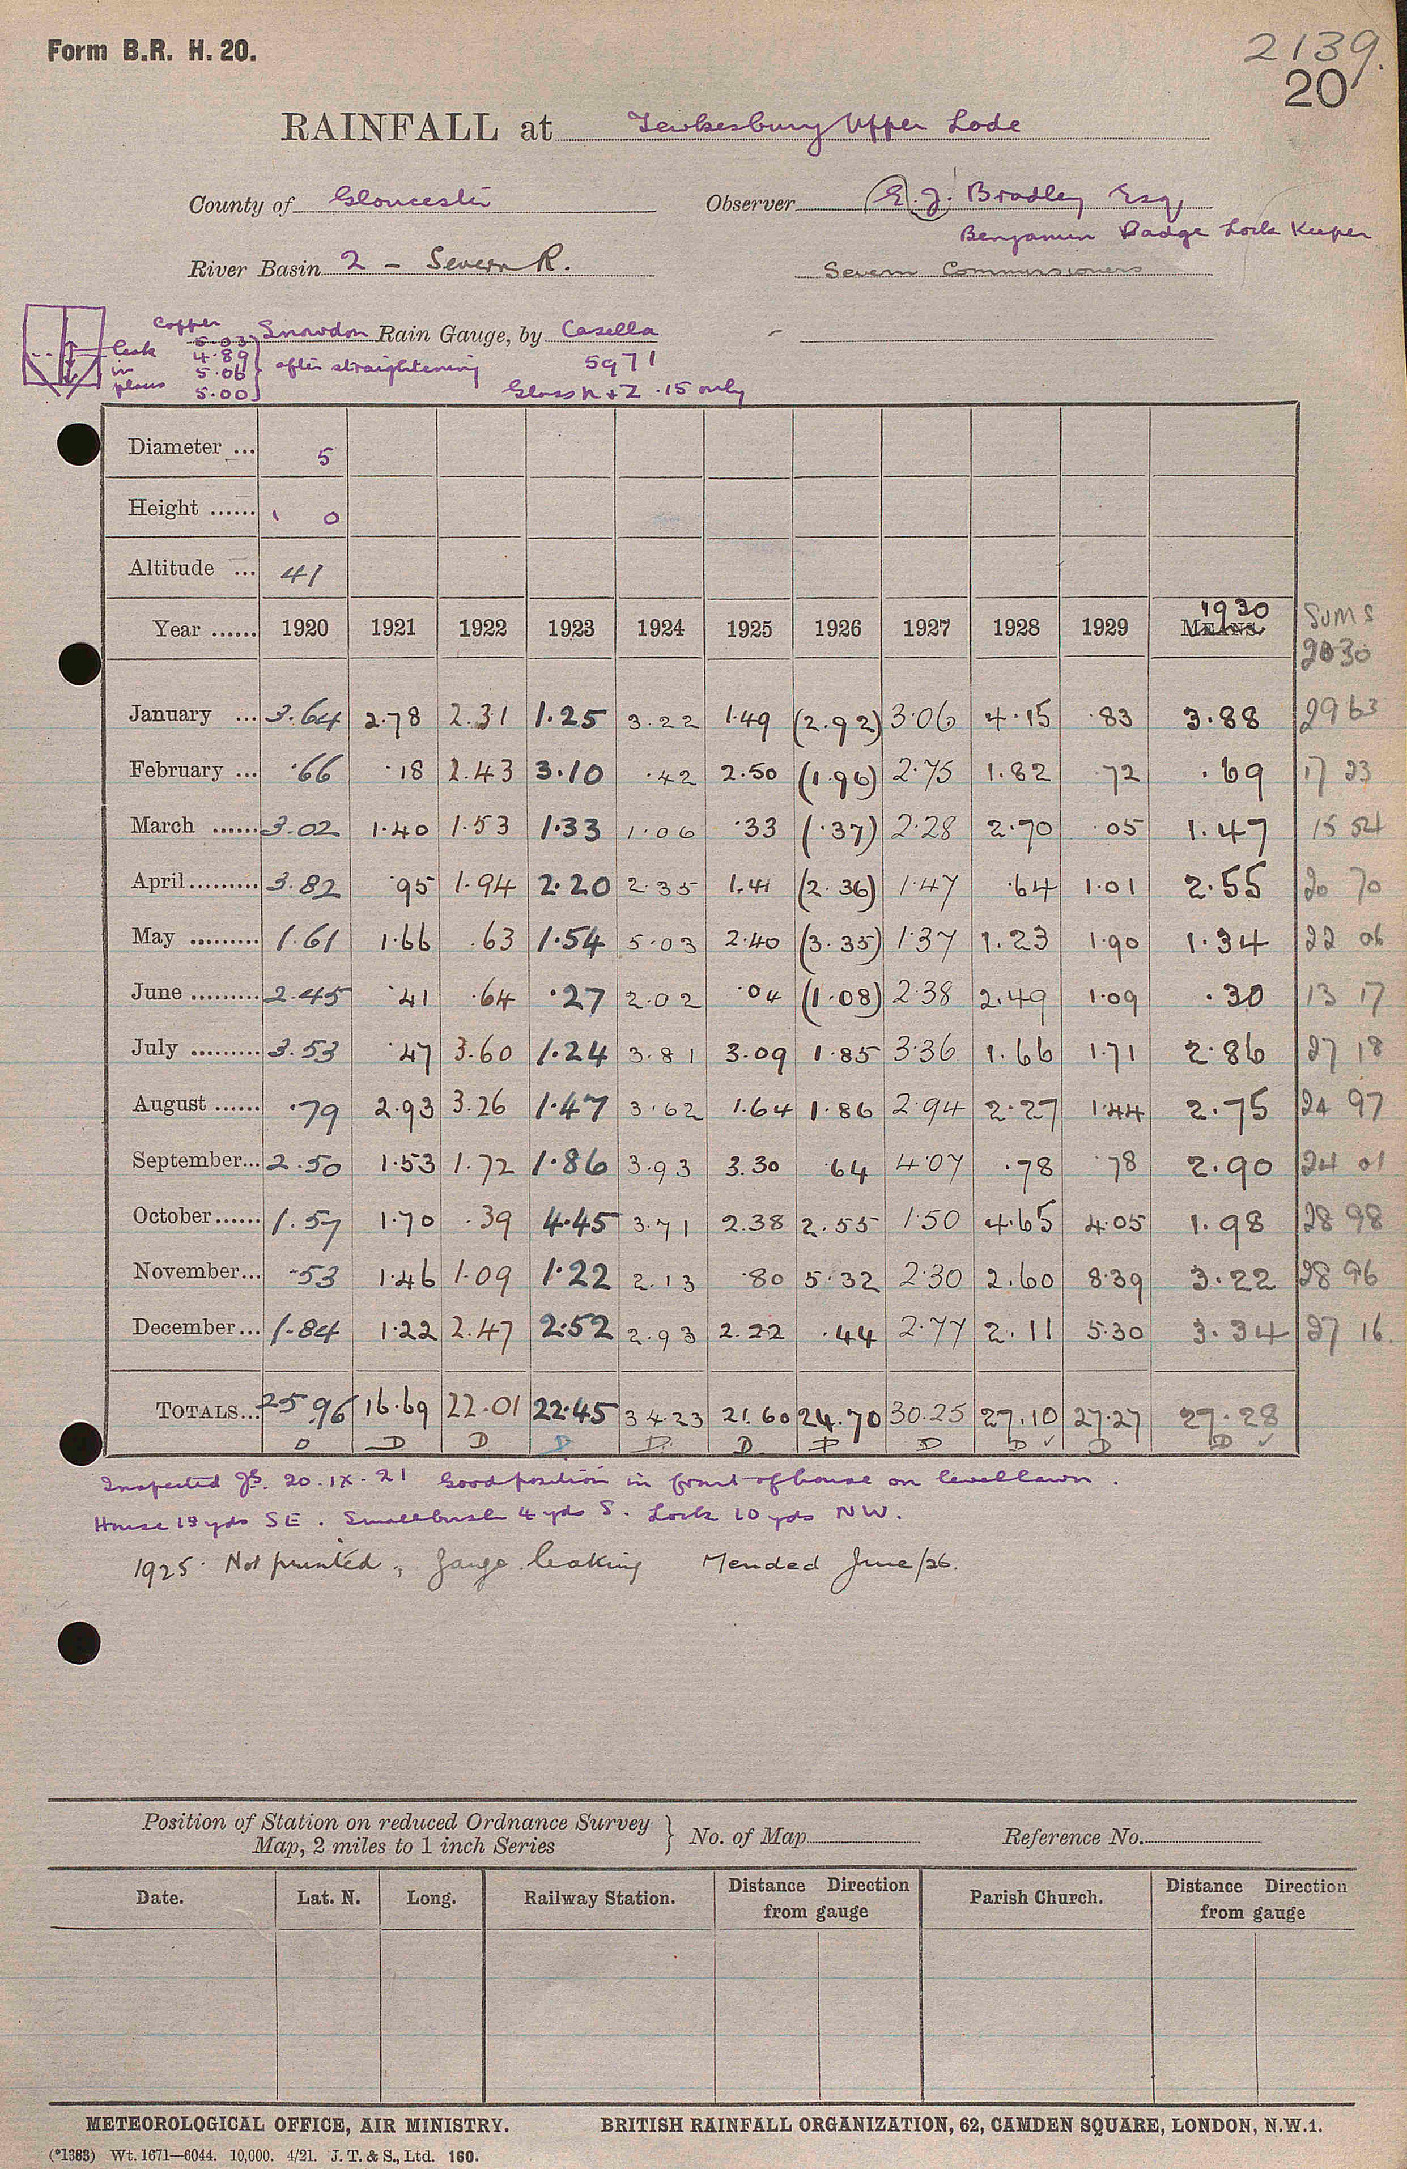 Form B.R. H. 20.
2139.
20
RAINFALL at Tewkesbury Upper Lode
County of Gloucester Observer E. J. Bradley Esq
Benjamin Lock Keeper
River Basin 2 - Severn R. Severn Commissioners
Copper Snowdon Rain Gauge, by Casella
leak in place
5.03
4.89
5.06
5.00
after straightening 5971
Glass .15 only
Diameter ... 5
Height ...... 1 0
Altitude ... 41
Year ...... 1920 1921 1922 1923 1924 1925 1926 1927 1928 1929 MEANS 1930 SUMS 2030
January ... 3.64 2.78 2.31 1.25 3.22 1.49 (2.92) 3.06 4.15 .83 3.88 29 63
February ... .66 .18 2.43 3.10 .42 2.50 (1.96) 2.75 1.82 .72 .69 17 23
March ...... 3.02 1.40 1.53 1.33 1.06 .33 (.37) 2.28 2.70 .05 1.47 15 54
April ......... 3.82 .95 1.94 2.20 2.35 1.41 (2.36) 1.47 .64 1.01 2.55 20 70
May ......... 1.61 1.66 .63 1.54 5.03 2.40 (3.35) 1.37 1.23 1.90 1.34 22 06
June ......... 2.45 .41 .64 .27 2.02 .04 (1.08) 2.38 2.49 1.09 .30 13 17
July ......... 3.53 .47 3.60 1.24 3.81 3.09 1.85 3.36 1.66 1.71 2.86 27 18
August ...... .79 2.93 3.26 1.47 3.62 1.64 1.86 2.94 2.27 1.44 2.75 24 97
September... 2.50 1.53 1.72 1.86 3.93 3.30 .64 4.07 .78 .78 2.90 24 01
October...... 1.57 1.70 .39 4.45 3.71 2.38 2.55 1.50 4.65 4.05 1.98 28 98
November... .53 1.46 1.09 1.22 2.13 .80 5.32 2.30 2.60 8.39 3.22 28 96
December... 1.84 1.22 2.47 2.52 2.93 2.22 .44 2.77 2.11 5.30 3.34 27 16.
TOTALS... 25.96 16.69 22.01 22.45 34.23 21.60 24.70 30.25 27.10 27.27 27.28
D D D D D D D D D ✓ D D ✓
Inspected 20.IX.21 Good position in front of house on level lawn.
House 19 yds SE. Small bush 4 yds S. Lock 10 yds NW.
1925 Not printed, gauge leaking Mended June/26.
Position of Station on reduced Ordnance Survey
Map, 2 miles to 1 inch Series } No. of Map Reference No.
Date. Lat. N. Long. Railway Station. Distance Direction from gauge Parish Church. Distance Direction from gauge
METEOROLOGICAL OFFICE, AIR MINISTRY. BRITISH RAINFALL ORGANIZATION, 62, CAMDEN SQUARE, LONDON, N.W.1.
(*1383) Wt. 1671—6044. 10,000. 4/21. J. T. & S., Ltd. 160.